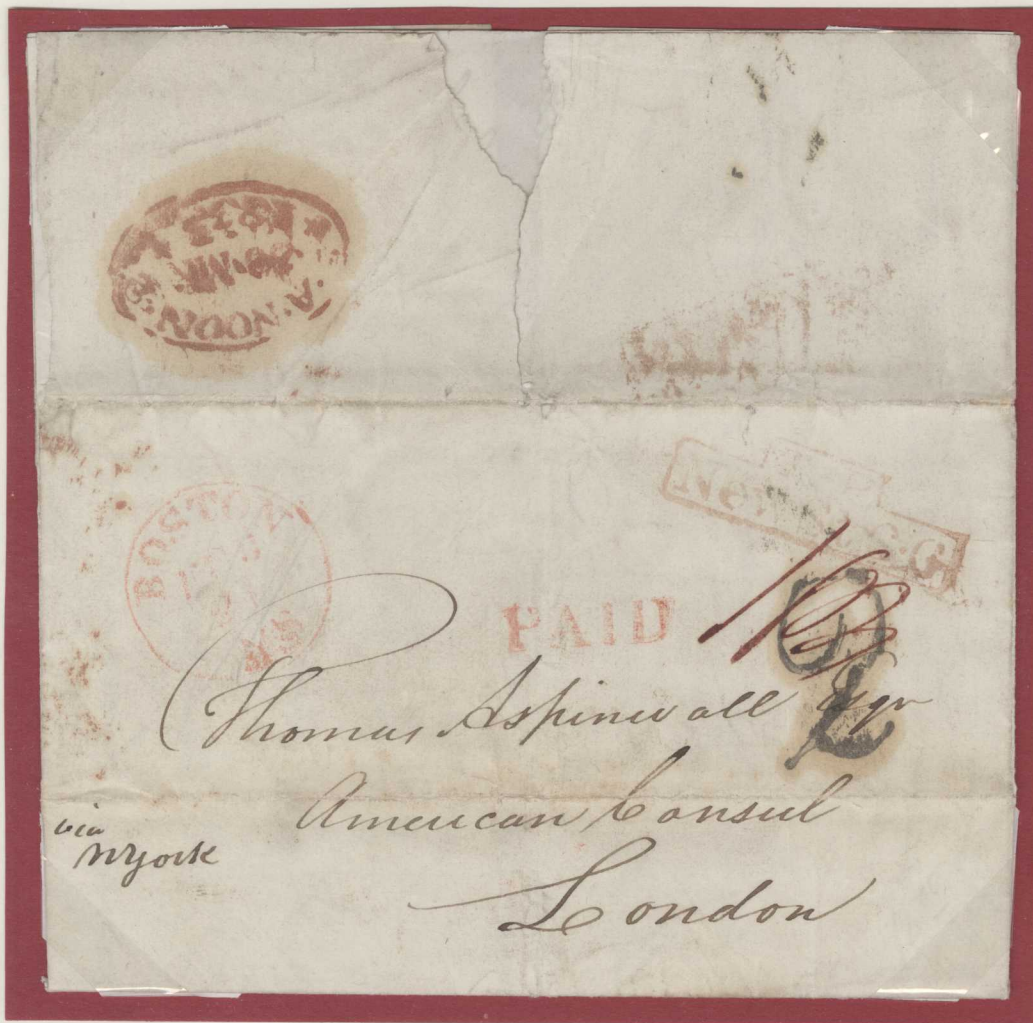 A. NOON
MR
1833
BOSTON
MS
PAID
Thomas Aspinwall Esqr
American Consul
London
via
NYork
2